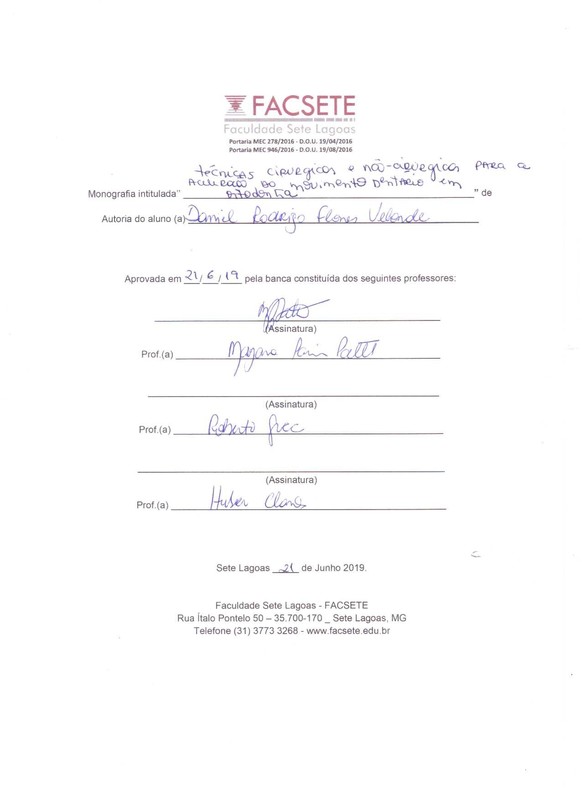 FACSETE
Faculdade Sete Lagoas
Portaria MEC 278/2016 - D.O.U. 19/04/2016
Portaria MEC 946/2016 - D.O.U. 19/08/2016
técnicas cirurgicas e não-cirurgicas PARA a
Aceleração do movimento Dentário em
Monografia intitulada" ortodontia " de
Autoria do aluno (a) Daniel Rodrigo Flores Velarde
Aprovada em 21/6/19 pela banca constituída dos seguintes professores:
(Assinatura)
Prof.(a)
(Assinatura)
Prof.(a) Roberto Grec
(Assinatura)
Prof.(a) Huber Claros
Sete Lagoas 21 de Junho 2019.
Faculdade Sete Lagoas - FACSETE
Rua Ítalo Pontelo 50 – 35.700-170 _ Sete Lagoas, MG
Telefone (31) 3773 3268 - www.facsete.edu.br